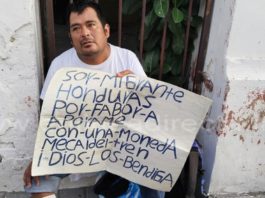 SOY-MIGRANTE
HONDURAS
POR-FABOR-A
APOIAME
CON-UNA-MONEDA
ME CAI del-tren
I-DIOS-LOS-BENDIGA